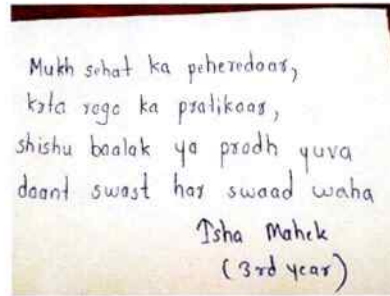 Mukh sehat ka peheredaar,
krta rogo ka pratikaar,
shishu baalak ya prodh yuva
daant swast har swaad waha
Isha Mahek
(3rd year)